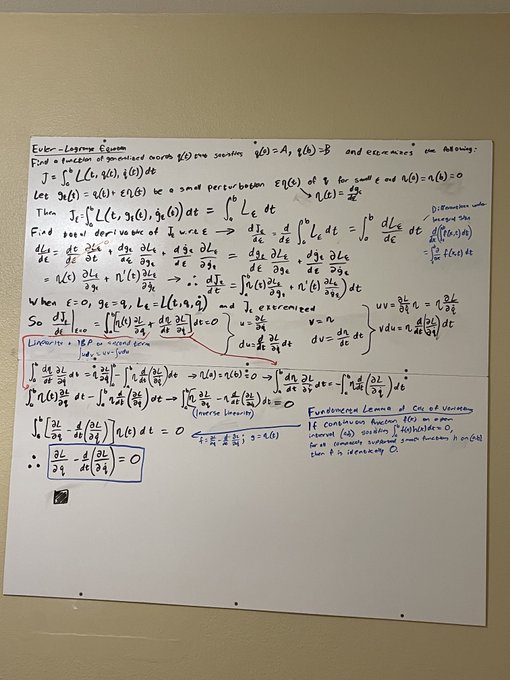 Euler-Lagrange Equation
Find a function of generalized coords q(t) that satisfies q(a)=A, q(b)=B and extremizes the following:
J = ∫_a^b L(t, q(t), q̇(t)) dt
Let g_ε(t) = q(t) + εη(t) be a small perturbation εη(t) of q for small ε and η(a)=η(b)=0
η(t) = dg_ε/dε
Then J_ε = ∫_a^b L(t, g_ε(t), ġ_ε(t)) dt = ∫_a^b L_ε dt
Find total derivative of J_ε w.r.t ε → dJ_ε/dε = d/dε ∫_a^b L_ε dt = ∫_a^b dL_ε/dε dt
Differentiation under
integral sign
d/dx(∫_a^b f(x,t) dt)
= ∫_a^b ∂/∂x f(x,t) dt
dL_ε/dε = dt/dε ∂L_ε/∂t + dg_ε/dε ∂L_ε/∂g_ε + dġ_ε/dε ∂L_ε/∂ġ_ε = dg_ε/dε ∂L_ε/∂g_ε + dġ_ε/dε ∂L_ε/∂ġ_ε
= η(t) ∂L_ε/∂g_ε + η'(t) ∂L_ε/∂ġ_ε → ∴ dJ_ε/dε = ∫_a^b [η(t) ∂L_ε/∂g_ε + η'(t) ∂L_ε/∂ġ_ε] dt
When ε=0, g_ε=q, L_ε = L(t,q,q̇) and J_ε extremized
So dJ_ε/dε|_ε=0 = ∫_a^b [η(t) ∂L/∂q + dη/dt ∂L/∂q̇] dt = 0
u = ∂L/∂q̇ v = η
du = d/dt ∂L/∂q̇ dv = dη/dt dt
uv = ∂L/∂q̇ η = η ∂L/∂q̇
vdu = η d/dt(∂L/∂q̇) dt
Linearity + IBP on second term
∫udv = uv - ∫vdu
∫_a^b dη/dt ∂L/∂q̇ dt = η ∂L/∂q̇ |_a^b - ∫_a^b η d/dt(∂L/∂q̇) dt → η(a)=η(b)=0 → ∫_a^b dη/dt ∂L/∂q̇ dt = -∫_a^b η d/dt(∂L/∂q̇) dt
∫_a^b η(t) ∂L/∂q dt - ∫_a^b η d/dt(∂L/∂q̇) dt → ∫_a^b [η ∂L/∂q - η d/dt(∂L/∂q̇)] dt = 0
(inverse linearity)
Fundamental Lemma of Calc of Variations
If continuous function f(x) on open
interval (a,b) satisfies ∫_a^b f(x)h(x)dx=0,
for all compactly supported smooth functions h on (a,b)
then f is identically 0.
f = ∂L/∂q - d/dt ∂L/∂q̇; g = η(t)
∫_a^b [∂L/∂q - d/dt(∂L/∂q̇)] η(t) dt = 0
∴ ∂L/∂q - d/dt(∂L/∂q̇) = 0